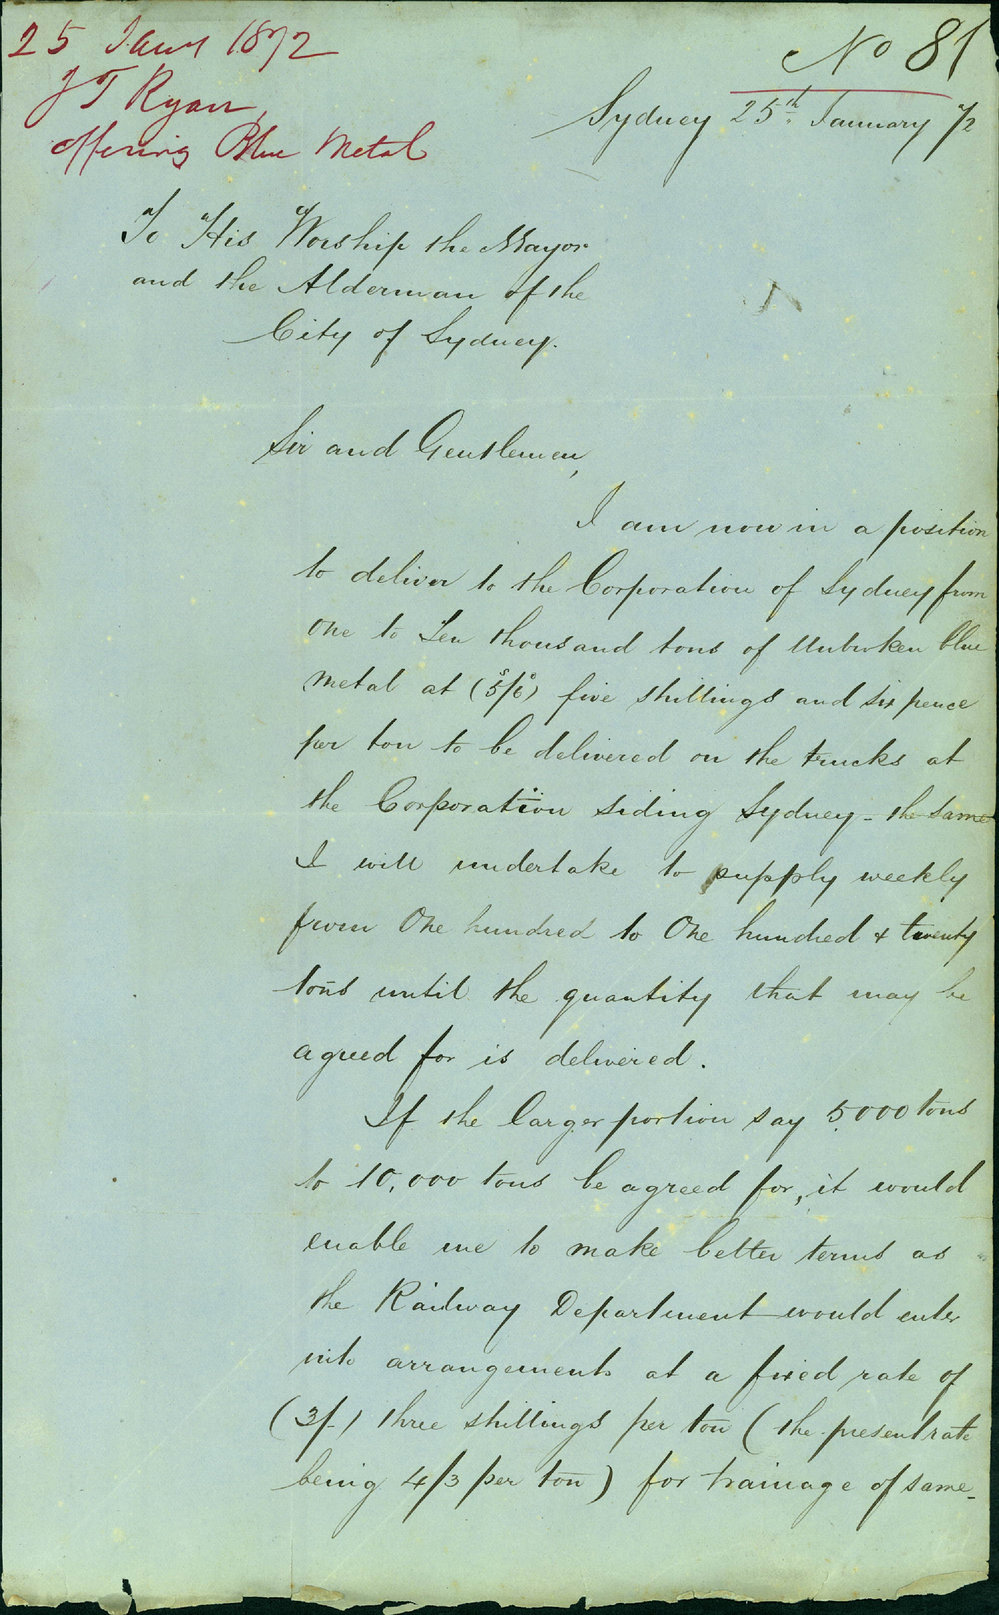 25 Jany 1872
J T Ryan
offering Blue Metal
No 81
Sydney 25th January 72
To His Worship the Mayor
and the Alderman of the
City of Sydney.
Sir and Gentlemen,
I am now in a position
to deliver to the Corporation of Sydney from
one to Ten thousand tons of Unbroken blue
metal at (5s/6d) five shillings and six pence
per ton to be delivered on the trucks at
the Corporation siding Sydney - the same
I will undertake to supply weekly
from One hundred to One hundred & twenty
tons until the quantity that may be
agreed for is delivered.
If the larger portion say 5000 tons
to 10,000 tons be agreed for, it would
enable me to make better terms as
the Railway Department would enter
into arrangements at a fixed rate of
(3/-) three shillings per ton (the present rate
being 4/3 per ton) for trainage of same -